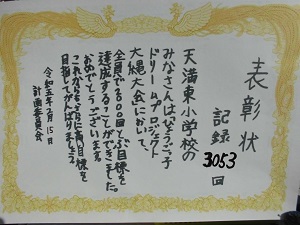 表彰状
記録 3053 回
天満東小学校の
みなさんはひょうごっ子
ドリームプロジェクト
大縄大会において、
全員で2000回とぶ目標を
達成することができました。
おめでとうございます。
これからもさらに高い目標を
目指してがんばりましょう。
令和五年2月15日
計画委員会